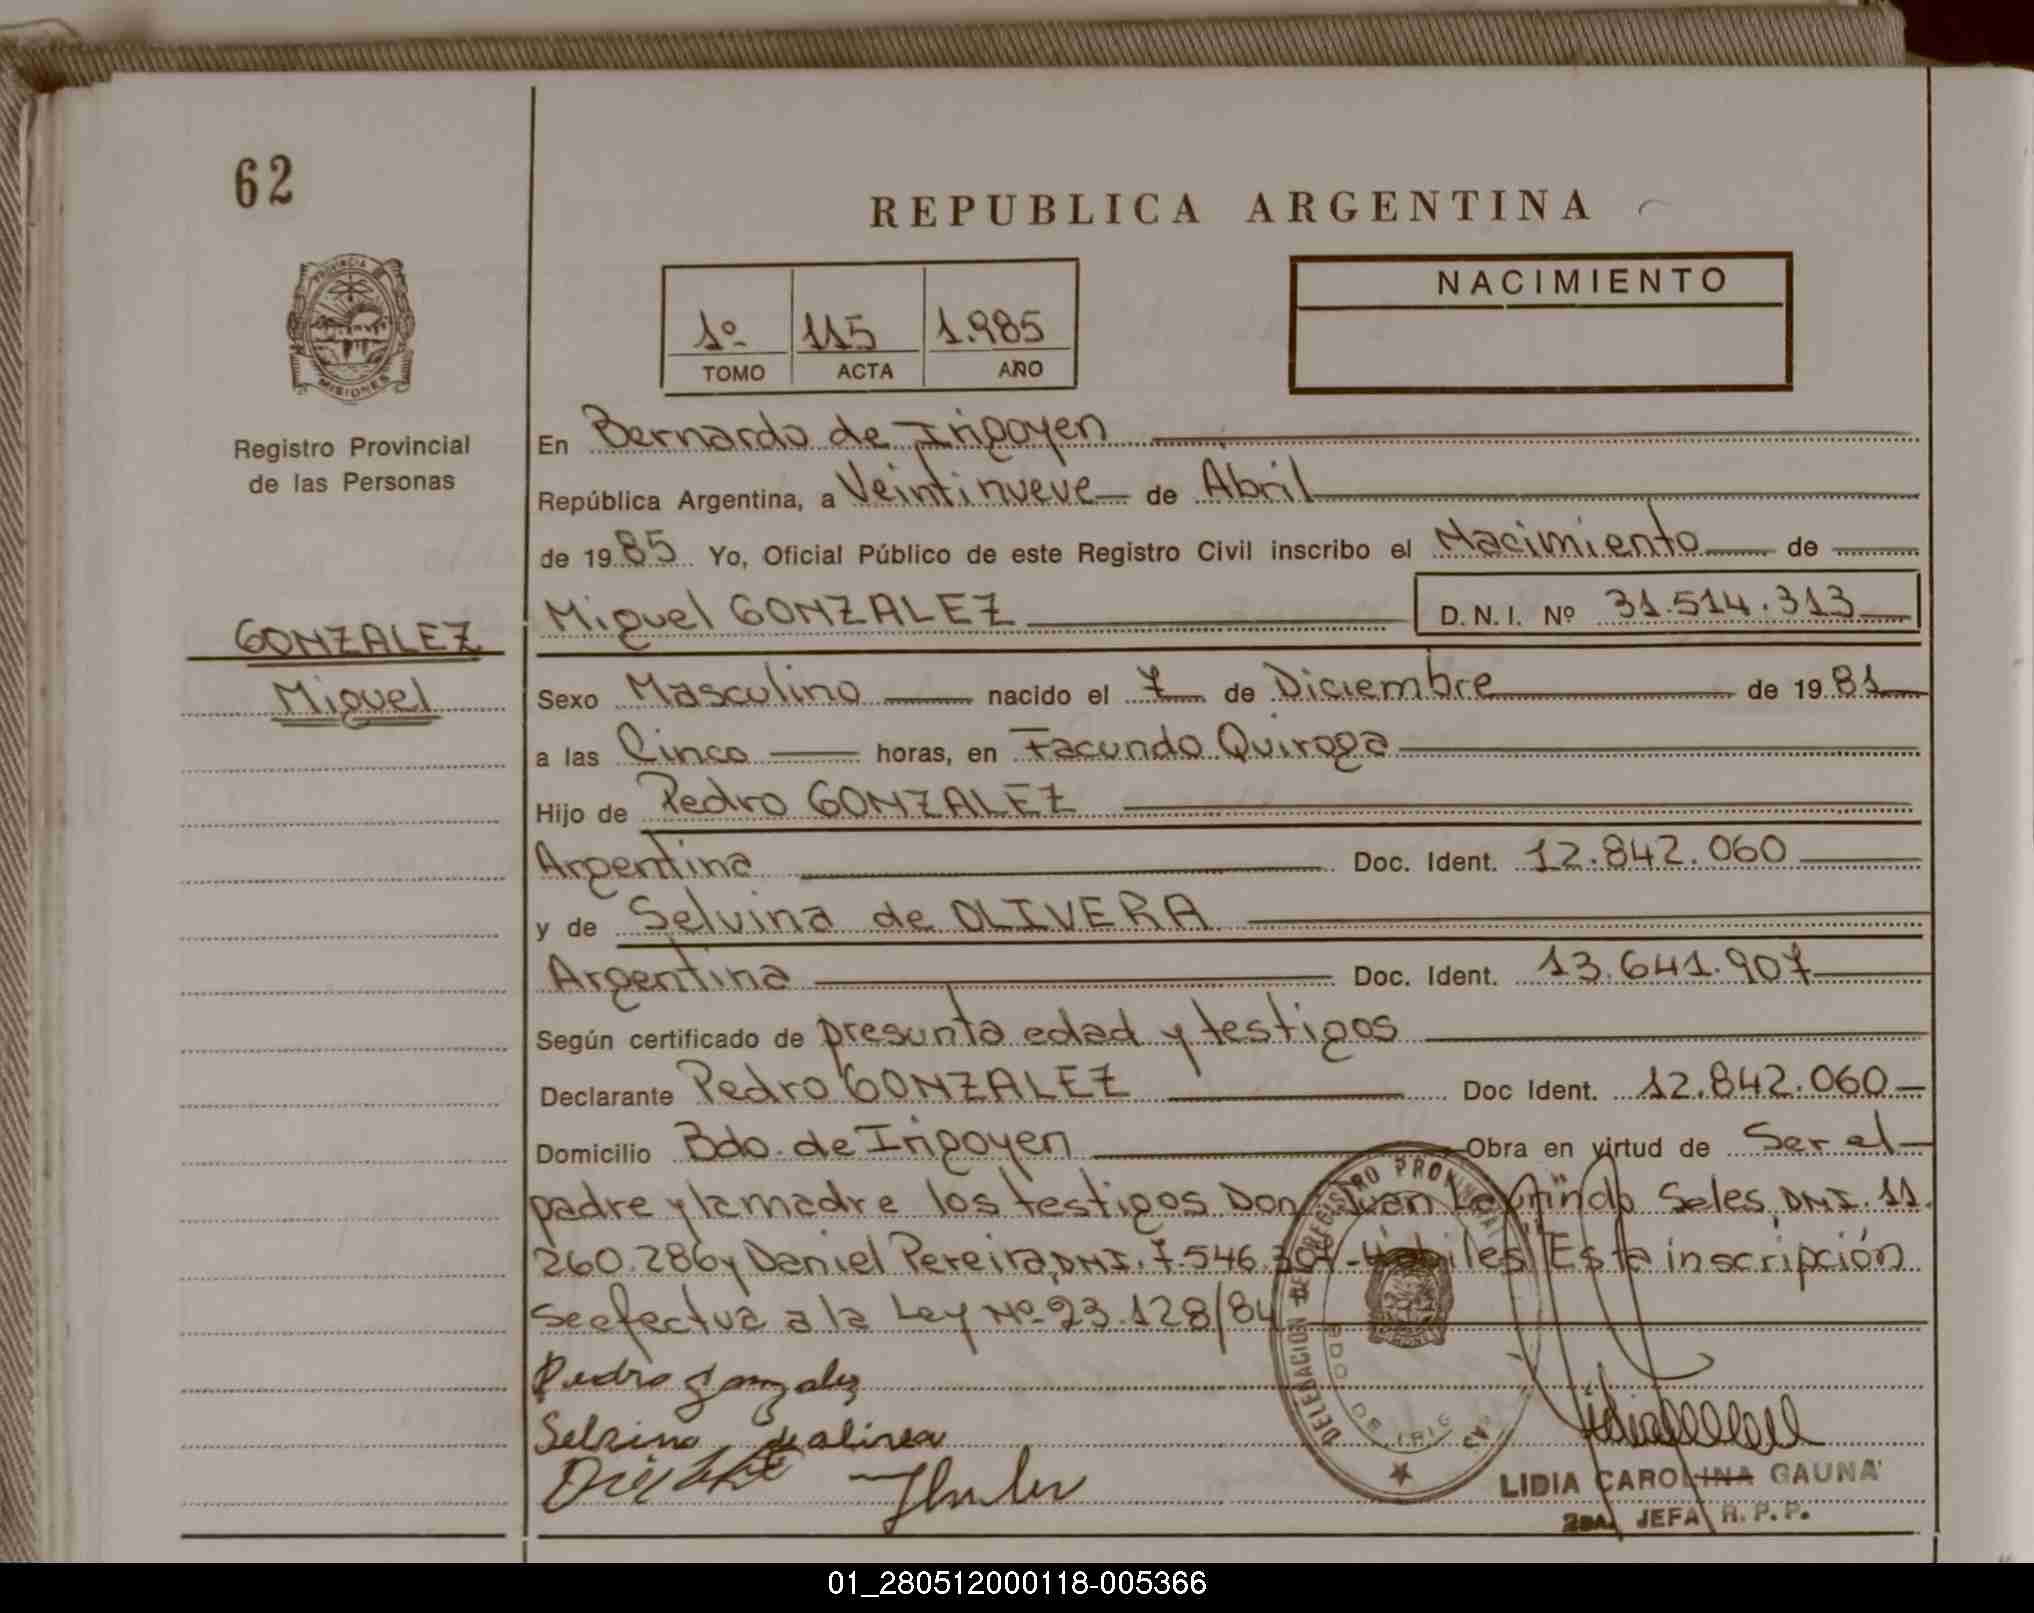 62
REPUBLICA ARGENTINA
PROVINCIA
MISIONES
1º 115 1.985
TOMO ACTA AÑO
NACIMIENTO
Registro Provincial
de las Personas
En Bernardo de Irigoyen
República Argentina, a Veintinueve de Abril
de 1985 Yo, Oficial Público de este Registro Civil inscribo el Nacimiento de
Miguel GONZALEZ D.N.I. Nº 31.514.313
GONZALEZ
Miguel
Sexo Masculino nacido el 7 de Diciembre de 1981
a las Cinco horas, en Facundo Quiroga
Hijo de Pedro GONZALEZ
Argentina Doc. Ident. 12.842.060
y de Selvina de OLIVERA
Argentina Doc. Ident. 13.641.907
Según certificado de presunta edad y testigos
Declarante Pedro GONZALEZ Doc Ident. 12.842.060
Domicilio Bdo. de Irigoyen Obra en virtud de Ser el
padre y la madre los testigos Don Juan Laurindo Seles, DNI. 11.
260.286 y Daniel Pereira, DNI. 7.546.307 - Habiles "Esta inscripción
se efectua a la Ley Nº 23.128/84
Pedro gonzalez
Selvina de olivera
DELEGACION DEL REGISTRO PROVINCIAL
BDO DE IRIG
LIDIA CAROLINA GAUNA
2DA. JEFA R.P.P.
01_280512000118-005366